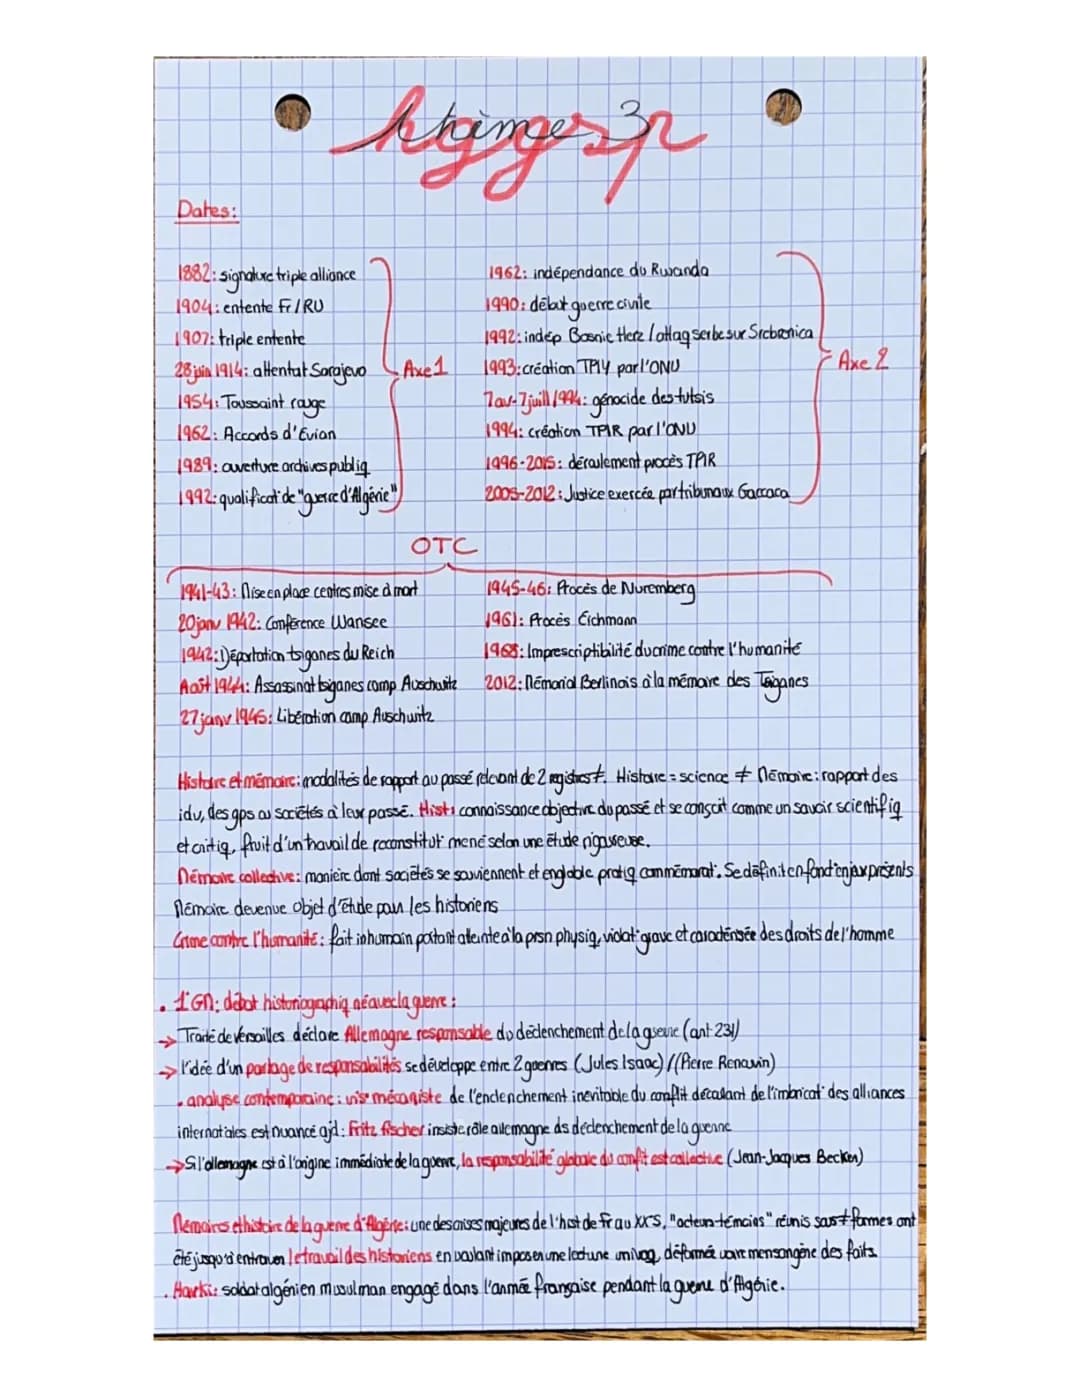 thème 3
hggsp
Dates:
1882: signature triple alliance
1904: entente Fr/RU
1907: triple entente
28 juin 1914: attentat Sarajevo
1954: Toussaint rouge
1962: Accords d'Evian
1989: ouverture archives publiq
1992: qualificat° de "guerre d'Algérie"
Axe 1
1962: indépendance du Rwanda
1990: début guerre civile
1992: indép Bosnie Herz / attaq serbe sur Srebrenica
1993: création TPIY par l'ONU
7 av-7 juill 1994: génocide des tutsis
1994: création TPIR par l'ONU
1996-2015: déroulement procès TPIR
2005-2012: Justice exercée par tribunaux Gaccaca
Axe 2
OTC
1941-43: Mise en place centres mise à mort
20 janv 1942: Conférence Wansee
1942: Déportation tsiganes du Reich
Août 1944: Assassinat tsiganes camp Auschwitz
27 janv 1945: Libération camp Auschwitz
1945-46: Procès de Nuremberg
1961: Procès Eichmann
1968: Imprescriptibilité du crime contre l'humanité
2012: Mémorial Berlinois à la mémoire des Tsiganes
Histoire et mémoire: modalités de rapport au passé relevant de 2 registres ≠. Histoire = science ≠ Mémoire: rapport des
idv, des gps ou sociétés à leur passé. Hist: connaissance objective du passé et se conçoit comme un savoir scientifiq
et critiq, fruit d'un travail de reconstitut° mené selon une étude rigoureuse.
Mémoire collective: manière dont sociétés se souviennent et englobe pratiq commémorat°. Se définit en fonct° enjeux présents
Mémoire devenue objet d'étude pour les historiens
Crime contre l'humanité: fait inhumain portant atteinte à la prsn physiq, violat° grave et caractérisée des droits de l'homme
. 1°GM: débat historiographiq né avec la guerre:
→ Traité de Versailles déclare Allemagne responsable du déclenchement de la guerre (art 231)
→ l'idée d'un partage de responsabilités se développe entre 2 guerres (Jules Isaac)/(Pierre Renouvin)
. analyse contemporaine: vis° mécaniste de l'enclenchement inévitable du conflit découlant de l'imbricat° des alliances
internat°ales est nuancé ajd: Fritz fischer insiste rôle allemagne ds déclenchement de la guerre
→ Si l'allemagne est à l'origine immédiate de la guerre, la responsabilité globale du conflit est collective (Jean-Jacques Becker)
Mémoires et histoire de la guerre d'Algérie: une des crises majeures de l'hist de Fr au XX°S, "acteurs-témoins" réunis sous ≠ formes ont
été jusqu'à entraver le travail des historiens en voulant imposer une lecture univoq, déformée voire mensongère des faits.
. Harkis: soldat algérien musulman engagé dans l'armée française pendant la guerre d'Algérie.